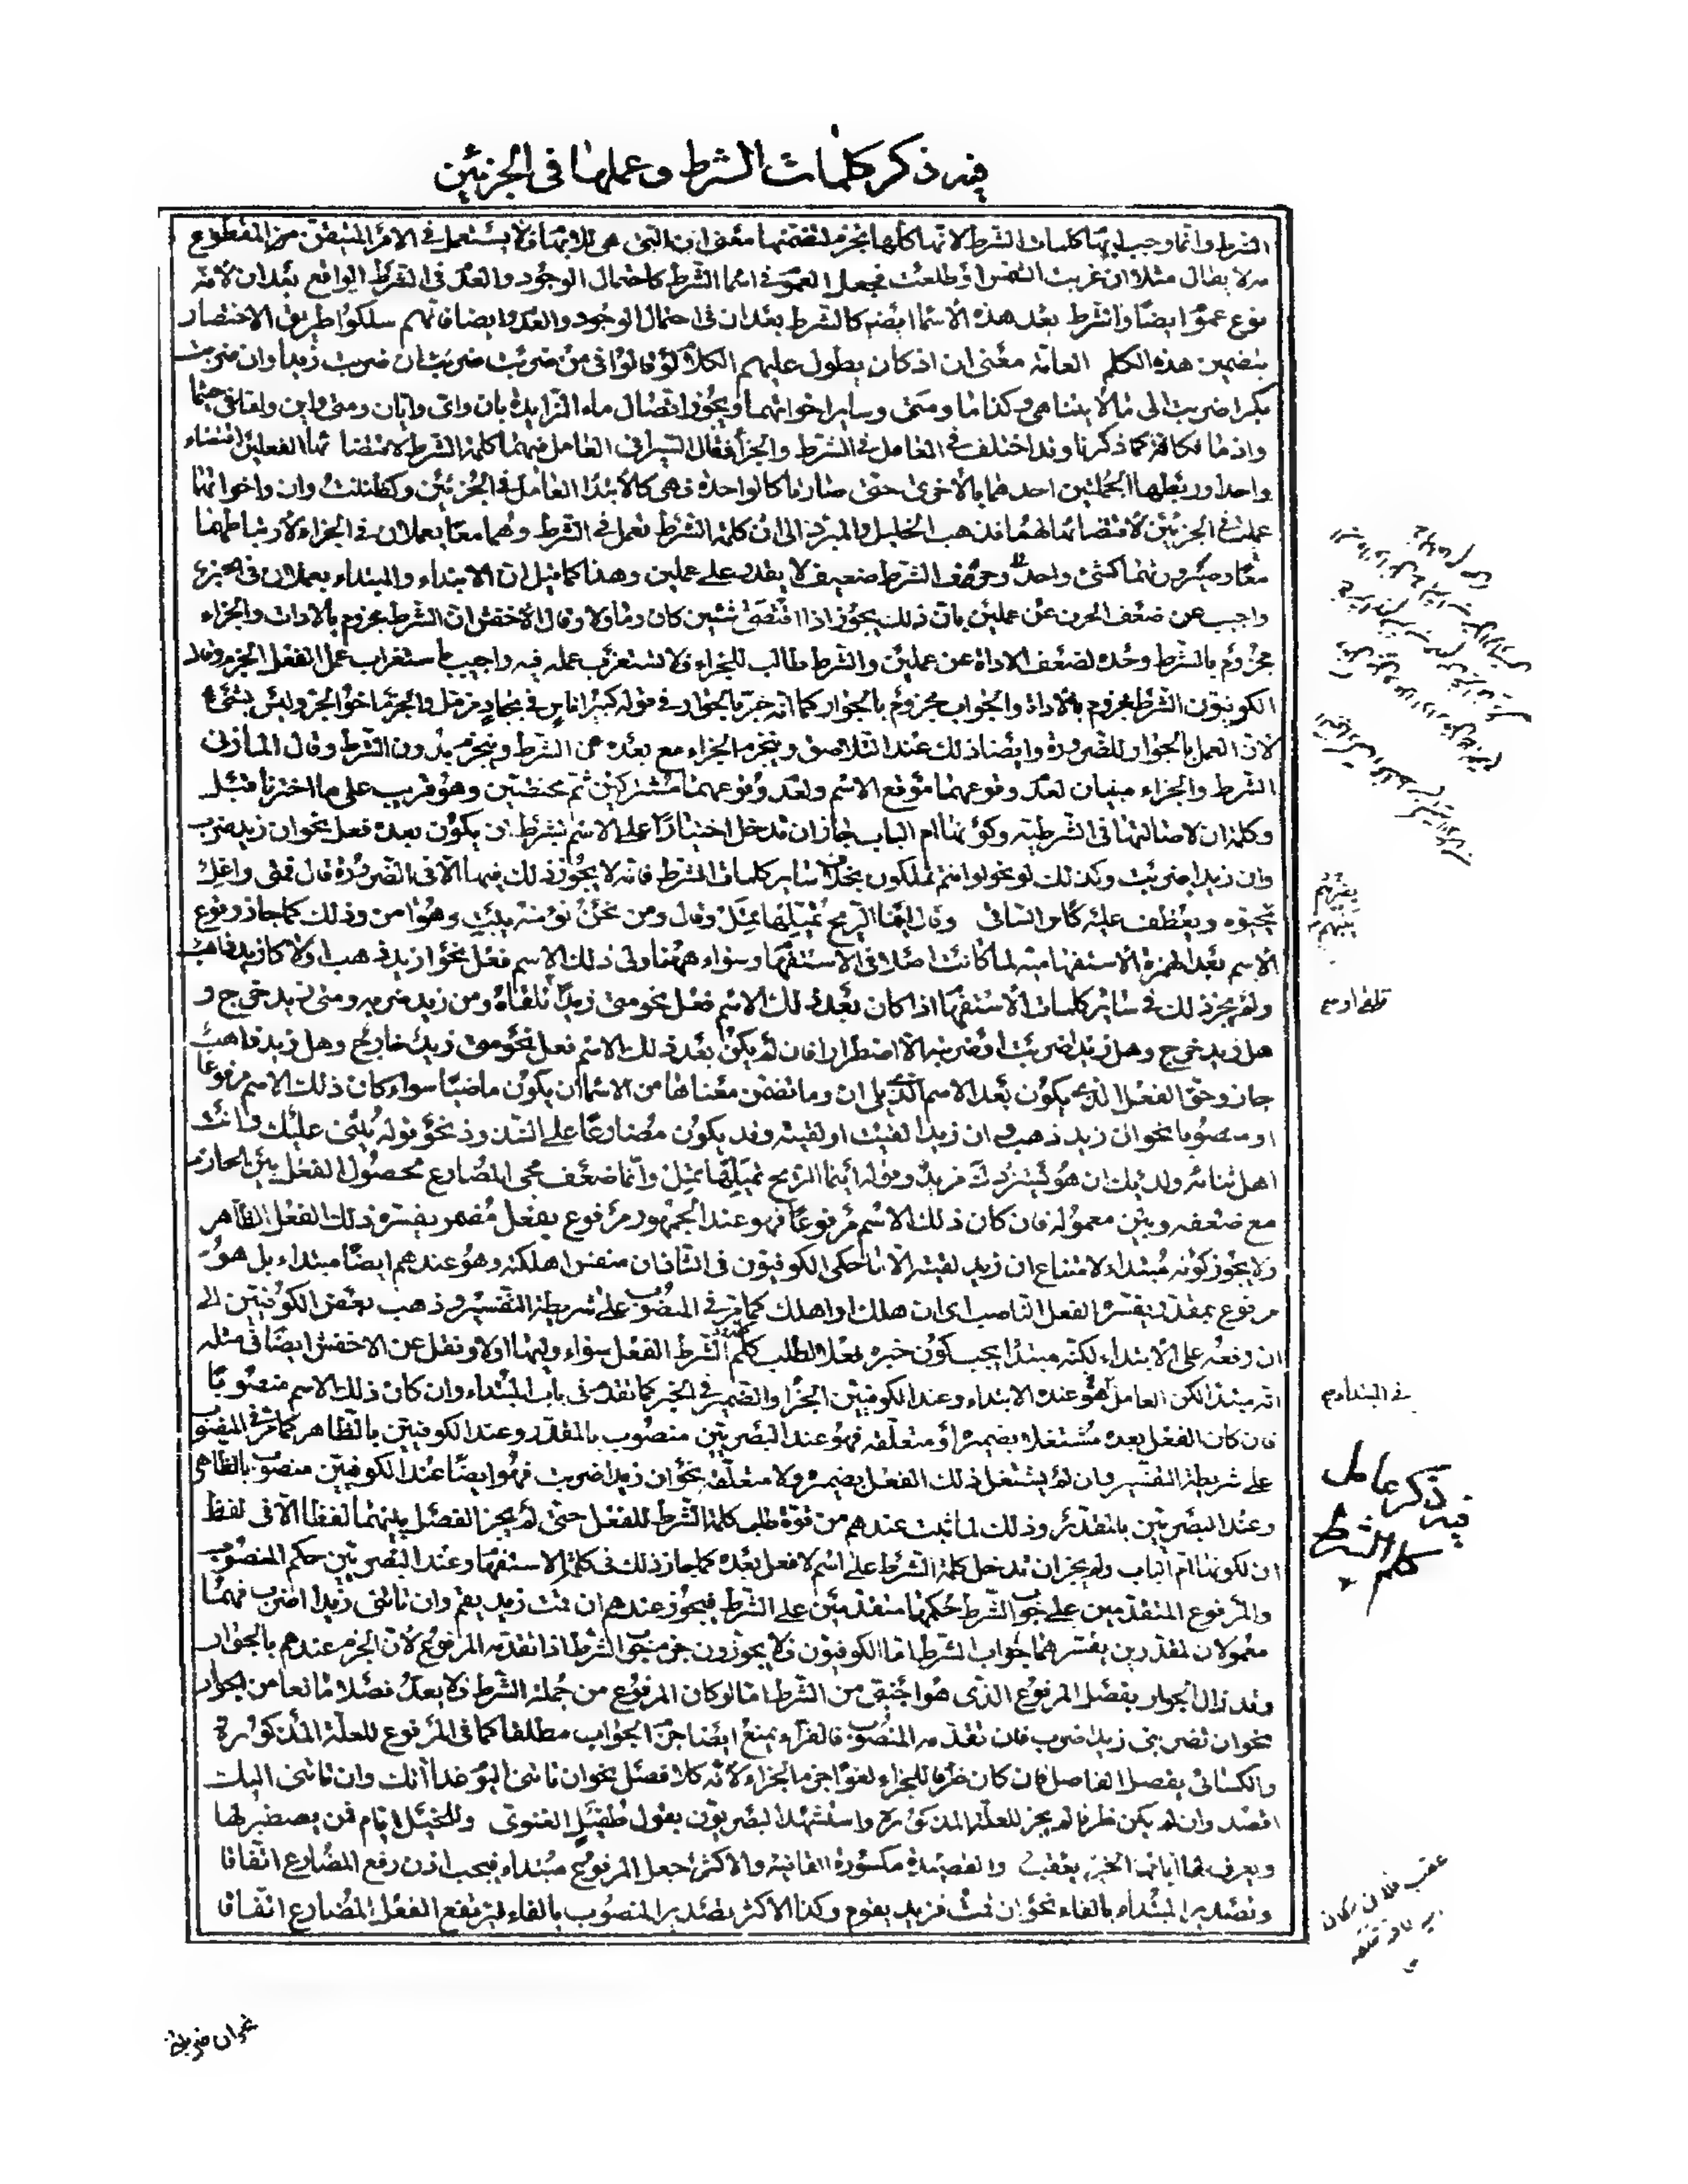 فيه ذكر كلمات الشرط وعملها في الجزئين
الشرط وانما وجب ابهام كلمات الشرط لانها كلها تجزم لتضمنها معنى ان التي هي للابهام فلا يستعمل في الامر المتيقن المقطوع
به لا يقال مثلا ان غربت الشمس او طلعت فجعل العموم في اسماء الشرط كاحتمال الوجود والعدم في الشرط الواقع بعد ان لانه
نوع عموم ايضا والشرط بعد هذه الاسماء ايضا كالشرط بعد ان في احتمال الوجود والعدم وايضا فانهم سلكوا طريق الاختصار
بتضمين هذه الكلم العامة معنى ان اذ كان يطول عليهم الكلام لو قالوا في من ضربت ضربت ان ضربت زيدا وان ضربت
بكرا ضربت الى ما لا يتناهى وكذا ما ومتى وساير اخواتهما ويجوز اتصال ماء المزايدة بان واى وايان ومتى واين
واذ ما فكافة كما ذكرنا وقد اختلف في العامل في الشرط والجزاء فقال السيرافي العامل فيهما كلمة الشرط لاقتضائها الفعلين اقتضاء
واحدا وربطها الجملتين احدهما بالاخرى حتى صارتا كالواحدة فهي كالابتداء العامل في الجزئين وكظننت وان واخواتهما
عملت في الجزئين لاقتضائها لهما فذهب الخليل والمبرد الى ان كلمة الشرط تعمل في الشرط وهما معا يعملان في الجزاء لارتباطهما
معا وصيرورتهما كشئ واحد وحرف الشرط ضعيف لا يقدر على عملين وهذا كما قيل ان الابتداء والمبتداء يعملان في الخبر
واجيب عن ضعف الحرف عن عملين بان ذلك يجوز اذا اقتضى شيئين كان وما ولا وقال الاخفش ان الشرط مجزوم بالادات والجزاء
مجزوم بالشرط وحده لضعف الاداة عن عملين والشرط طالب للجزاء فلا يستغرب عمله فيه واجيب باستغراب عمل الفعل الجزم وقال
الكوفيون الشرط مجزوم بالاداة والجواب مجزوم بالجوار كما انه جر بالجوار في قوله كبير اناس في بجاد مزمل والجزم اخو الجر وليس بشئ
لان العمل بالجوار للضرورة وايضا ذلك عند التلاصق وينجزم الجزاء مع بعده عن الشرط وينجزم بدون الشرط وقال المازني
الشرط والجزاء مبنيان لعدم وقوعهما موقع الاسم ولعدم وقوعهما مشتركين ثم مختصين وهو قريب على ما اخترنا قبل
وكلمة ان لاصالتها في الشرطية وكونها ام الباب جاز ان تدخل اختيارا على الاسم بشرط ان يكون بعده فعل نحو ان زيد ضرب
وان زيدا ضربت وكذلك لو نحو لو انتم تملكون بخلاف ساير كلمات الشرط فانه لا يجوز ذلك فيها الا في الضرورة قال فمتى واغل
يحيوه ويعطف عليه كاس الساقي وقال اينما الريح تميلها تمل وقال ومن نحن نؤمنه يبت وهو امن وذلك كما جاز وقوع
الاسم بعد الهمزة الاستفهامية لما كانت اصلا في الاستفهام وسواء ههنا ولي ذلك الاسم فعل نحو ازيد ذهب او لا كازيد ذاهب
ولم يجز ذلك في ساير كلمات الاستفهام اذا كان بعد ذلك الاسم فعل نحو متى زيدا تلقاه ومن زيد ضربه ومتى زيد خرج و
هل زيد خرج وهل زيدا ضربت او ضربته الا اضطرارا فان لم يكن بعد ذلك الاسم فعل نحو متى زيد خارج وهل زيد ذاهب
جاز وحق الفعل الذي يكون بعد الاسم الذي يلي ان وما تضمن معناها من الاسماء ان يكون ماضيا سواء كان ذلك الاسم مرفوعا
او منصوبا نحو ان زيد ذهب وان زيدا لقيت او لقيته وقد يكون مضارعا على الشذوذ نحو قوله يثني عليك وانت
اهل ثنائه ولديك ان هو يستزدك مزيد وقوله اينما الريح تميلها تمل وانما ضعف مجئ المضارع لحصول الفعل بين الجازم
مع ضعفه وبين معموله فان كان ذلك الاسم مرفوعا فهو عند الجمهور مرفوع بفعل مضمر يفسره ذلك الفعل الظاهر
ولا يجوز كونه مبتداء لامتناع ان زيد لقيته الا ما حكى الكوفيون في الشاذ ان منفس اهلكته وهو عندهم ايضا مبتداء بل هو
مرفوع بمقدر يفسره الفعل الناصب اى ان هلك او اهلك كما مر في المنصوب على شريطة التفسير وذهب بعض الكوفيين الى
ان رفعه على الابتداء لكنه مبتدا يجب كون خبره فعلا لطلب كلمة الشرط الفعل سواء وليها اولا ونقل عن الاخفش ايضا في مثله
انه مبتدا لكن العامل فيه عنده الابتداء وعند الكوفيين الخبر او الضمير في الخبر كما تقدم في باب المبتداء وان كان ذلك الاسم منصوبا
فان كان الفعل بعده مشتغلا بضميره او متعلقه فهو عند البصريين منصوب بالمقدر وعند الكوفيين بالظاهر كما مر في المنصوب
على شريطة التفسير وان لم يشتغل ذلك الفعل بضميره ولا متعلقه نحو ان زيدا ضربت فهو ايضا عند الكوفيين منصوب بالظاهر
وعند البصريين بالمقدر وذلك لما ثبت عندهم من قوة طلب كلمة الشرط للفعل حتى لم يجز الفصل بينهما لفظا الا في لفظ
ان لكونها ام الباب ولم يجز ان تدخل كلمة الشرط على اسم لا فعل بعده كما جاز ذلك في كلمة الاستفهام وعند البصريين حكم المنصوب
والمرفوع المتقدمين على جواب الشرط حكمهما متقدمين على الشرط فيجوز عندهم ان قمت زيد يقم وان تاتني زيدا اضرب فهما
معمولان لمقدرين يفسرهما جواب الشرط اما الكوفيون فلا يجوزون جزم جواب الشرط اذا تقدمه المرفوع لان الجزم عندهم بالجوار
وقد زال الجوار بفصل المرفوع الذي هو اجنبي من الشرط اما لو كان المرفوع من جملة الشرط فلا يعد فصلا مانعا من الجوار
نحو ان تضربني زيدا ضرب فان تقدمه المنصوب فالفراء يمنع ايضا جزم الجواب مطلقا كما في المرفوع للعلة المذكورة
والكسائي يفصل الفاصل فان كان ظرفا للجزاء لغوا جزم الجزاء لانه كلا فصل نحو ان تاتني اليوم غدا آتك وان تاتني اليك
اقصد وان لم يكن ظرفا لم يجز للعلة المذكورة واستشهد البصريون بقول طفيل الغنوي وللخيل ايام فمن يصطبر لها
ويعرف لها ايامها الخير يعقب والقصيدة مكسورة القافية والاكثر جعل المرفوع مبتداء فيجب اذن رفع المضارع اتفاقا
وتصدير المبتداء بالفاء نحو ان قمت فزيد يقوم وكذا الاكثر تصدير المنصوب بالفاء فيرتفع الفعل المضارع اتفاقا
في المبتداء
فيه ذكر عامل
كلم الشرط
نحو ان ضربت